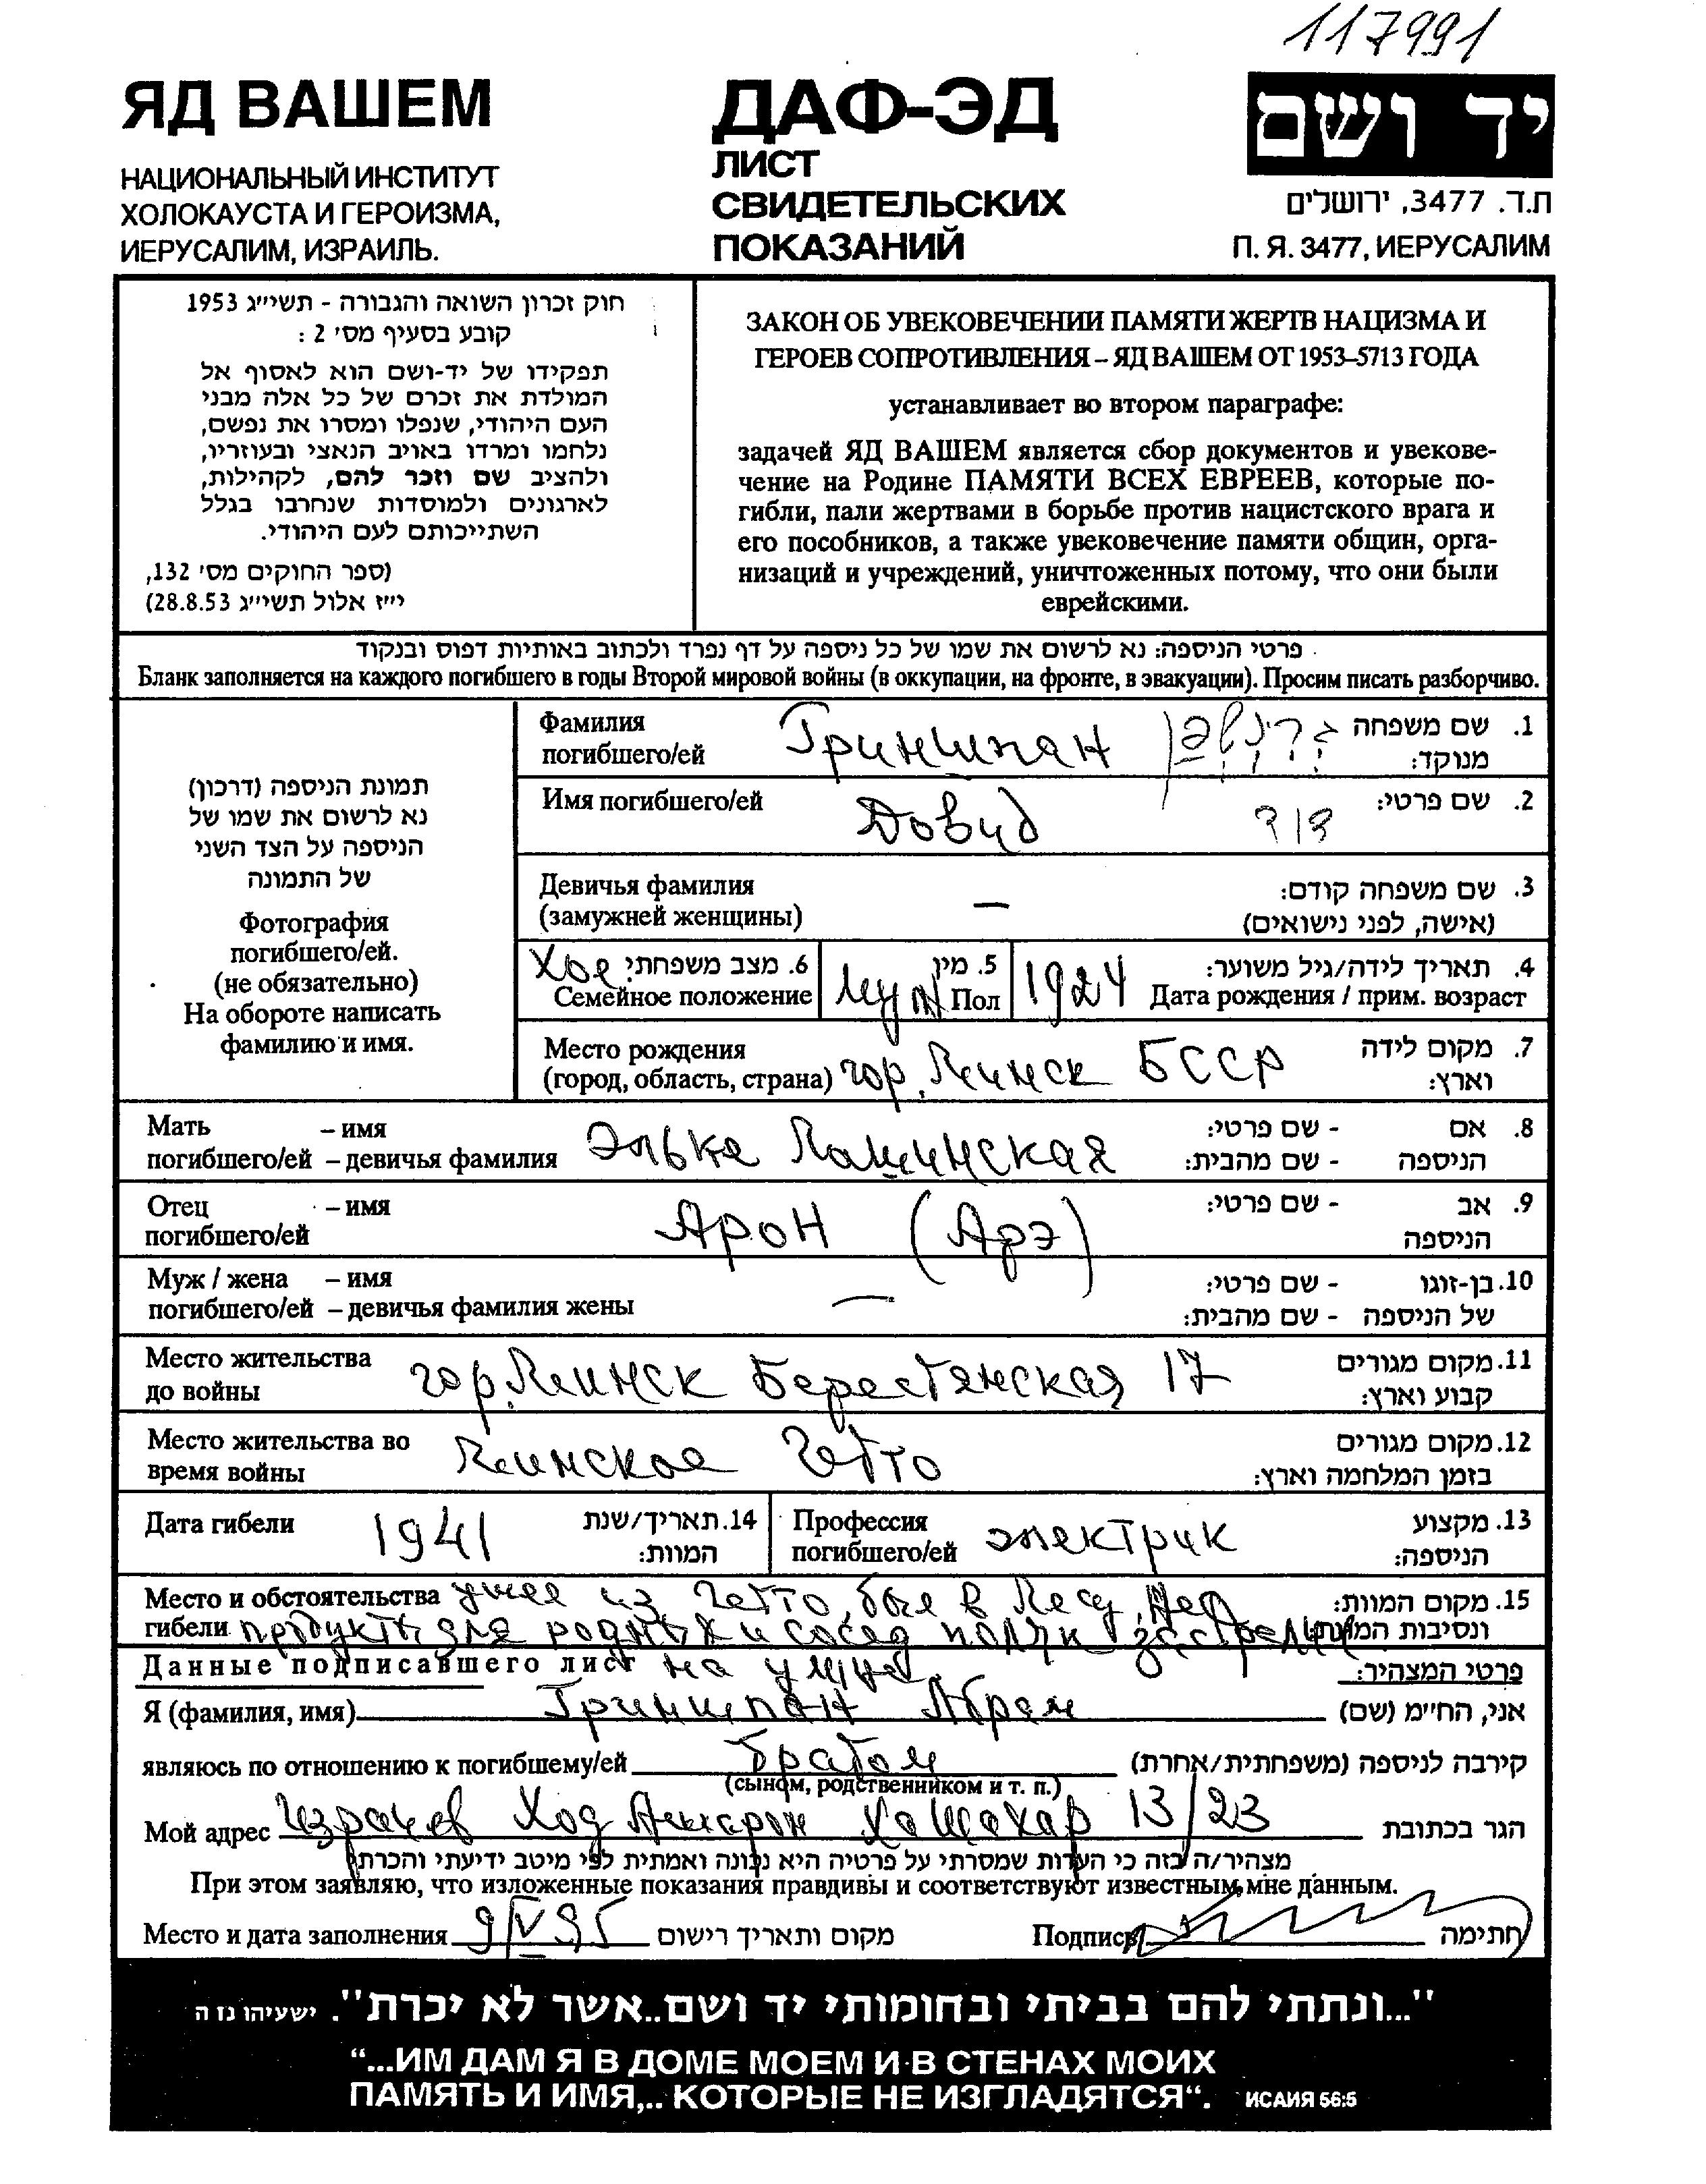 117991
ЯД ВАШЕМ
НАЦИОНАЛЬНЫЙ ИНСТИТУТ
ХОЛОКАУСТА И ГЕРОИЗМА,
ИЕРУСАЛИМ, ИЗРАИЛЬ.
ДАФ-ЭД
ЛИСТ
СВИДЕТЕЛЬСКИХ
ПОКАЗАНИЙ
יד ושם
ת.ד. 3477, ירושלים
П. Я. 3477, ИЕРУСАЛИМ
חוק זכרון השואה והגבורה - תשי״ג 1953
קובע בסעיף מס׳ 2 :
תפקידו של יד-ושם הוא לאסוף אל
המולדת את זכרם של כל אלה מבני
העם היהודי, שנפלו ומסרו את נפשם,
נלחמו ומרדו באויב הנאצי ובעוזריו,
ולהציב שם וזכר להם, לקהילות,
לארגונים ולמוסדות שנחרבו בגלל
השתייכותם לעם היהודי.
(ספר החוקים מס׳ 132,
י״ז אלול תשי״ג 28.8.53)
ЗАКОН ОБ УВЕКОВЕЧЕНИИ ПАМЯТИ ЖЕРТВ НАЦИЗМА И
ГЕРОЕВ СОПРОТИВЛЕНИЯ – ЯД ВАШЕМ ОТ 1953–5713 ГОДА
устанавливает во втором параграфе:
задачей ЯД ВАШЕМ является сбор документов и увекове-
чение на Родине ПАМЯТИ ВСЕХ ЕВРЕЕВ, которые по-
гибли, пали жертвами в борьбе против нацистского врага и
его пособников, а также увековечение памяти общин, орга-
низаций и учреждений, уничтоженных потому, что они были
еврейскими.
פרטי הניספה: נא לרשום את שמו של כל ניספה על דף נפרד ולכתוב באותיות דפוס ובנקוד
Бланк заполняется на каждого погибшего в годы Второй мировой войны (в оккупации, на фронте, в эвакуации). Просим писать разборчиво.
תמונת הניספה (דרכון)
נא לרשום את שמו של
הניספה על הצד השני
של התמונה
Фотография
погибшего/ей.
(не обязательно)
На обороте написать
фамилию и имя.
Фамилия Гриншпан גרינשפן 1. שם משפחה
погибшего/ей מנוקד:
Имя погибшего/ей Довид דוד 2. שם פרטי:
Девичья фамилия — 3. שם משפחה קודם:
(замужней женщины) (אישה, לפני נישואים)
Хол 6. מצב משפחתי: муж 5. מין 1924 4. תאריך לידה/גיל משוער:
Семейное положение Пол Дата рождения / прим. возраст
Место рождения 7. מקום לידה
(город, область, страна) гор. Минск БССР וארץ:
Мать – имя 8. אם - שם פרטי:
погибшего/ей – девичья фамилия Элька הניספה - שם מהבית:
Отец – имя Арон (Арэ) 9. אב - שם פרטי:
погибшего/ей הניספה
Муж / жена – имя — 10. בן-זוגו - שם פרטי:
погибшего/ей – девичья фамилия жены של הניספה - שם מהבית:
Место жительства гор. Минск Берестянская 17 11. מקום מגורים
до войны קבוע וארץ:
Место жительства во Минское Гетто 12. מקום מגורים
время войны בזמן המלחמה וארץ:
Дата гибели 1941 14. תאריך/שנת המוות: Профессия электрик 13. מקצוע
погибшего/ей הניספה:
Место и обстоятельства ушел из гетто, был в лесу, 15. מקום המוות:
гибели продукты для родных и ונסיבות המוות:
Данные подписавшего лист на פרטי המצהיר:
Я (фамилия, имя) Гриншпан Абрам אני, החיימ (שם)
являюсь по отношению к погибшему/ей братом קירבה לניספה (משפחתית/אחרת)
(сыном, родственником и т. п.)
Мой адрес Хашахар 13/23 הגר בכתובת
מצהיר/ה בזה כי העדות שמסרתי על פרטיה היא נכונה ואמתית לפי מיטב ידיעתי והכרתי
При этом заявляю, что изложенные показания правдивы и соответствуют известным мне данным.
Место и дата заполнения 9/V 95 מקום ותאריך רישום Подпись חתימה
"...ונתתי להם בביתי ובחומותי יד ושם..אשר לא יכרת". ישעיהו נז ה
“...ИМ ДАМ Я В ДОМЕ МОЕМ И В СТЕНАХ МОИХ
ПАМЯТЬ И ИМЯ,.. КОТОРЫЕ НЕ ИЗГЛАДЯТСЯ“. ИСАИЯ 56:5